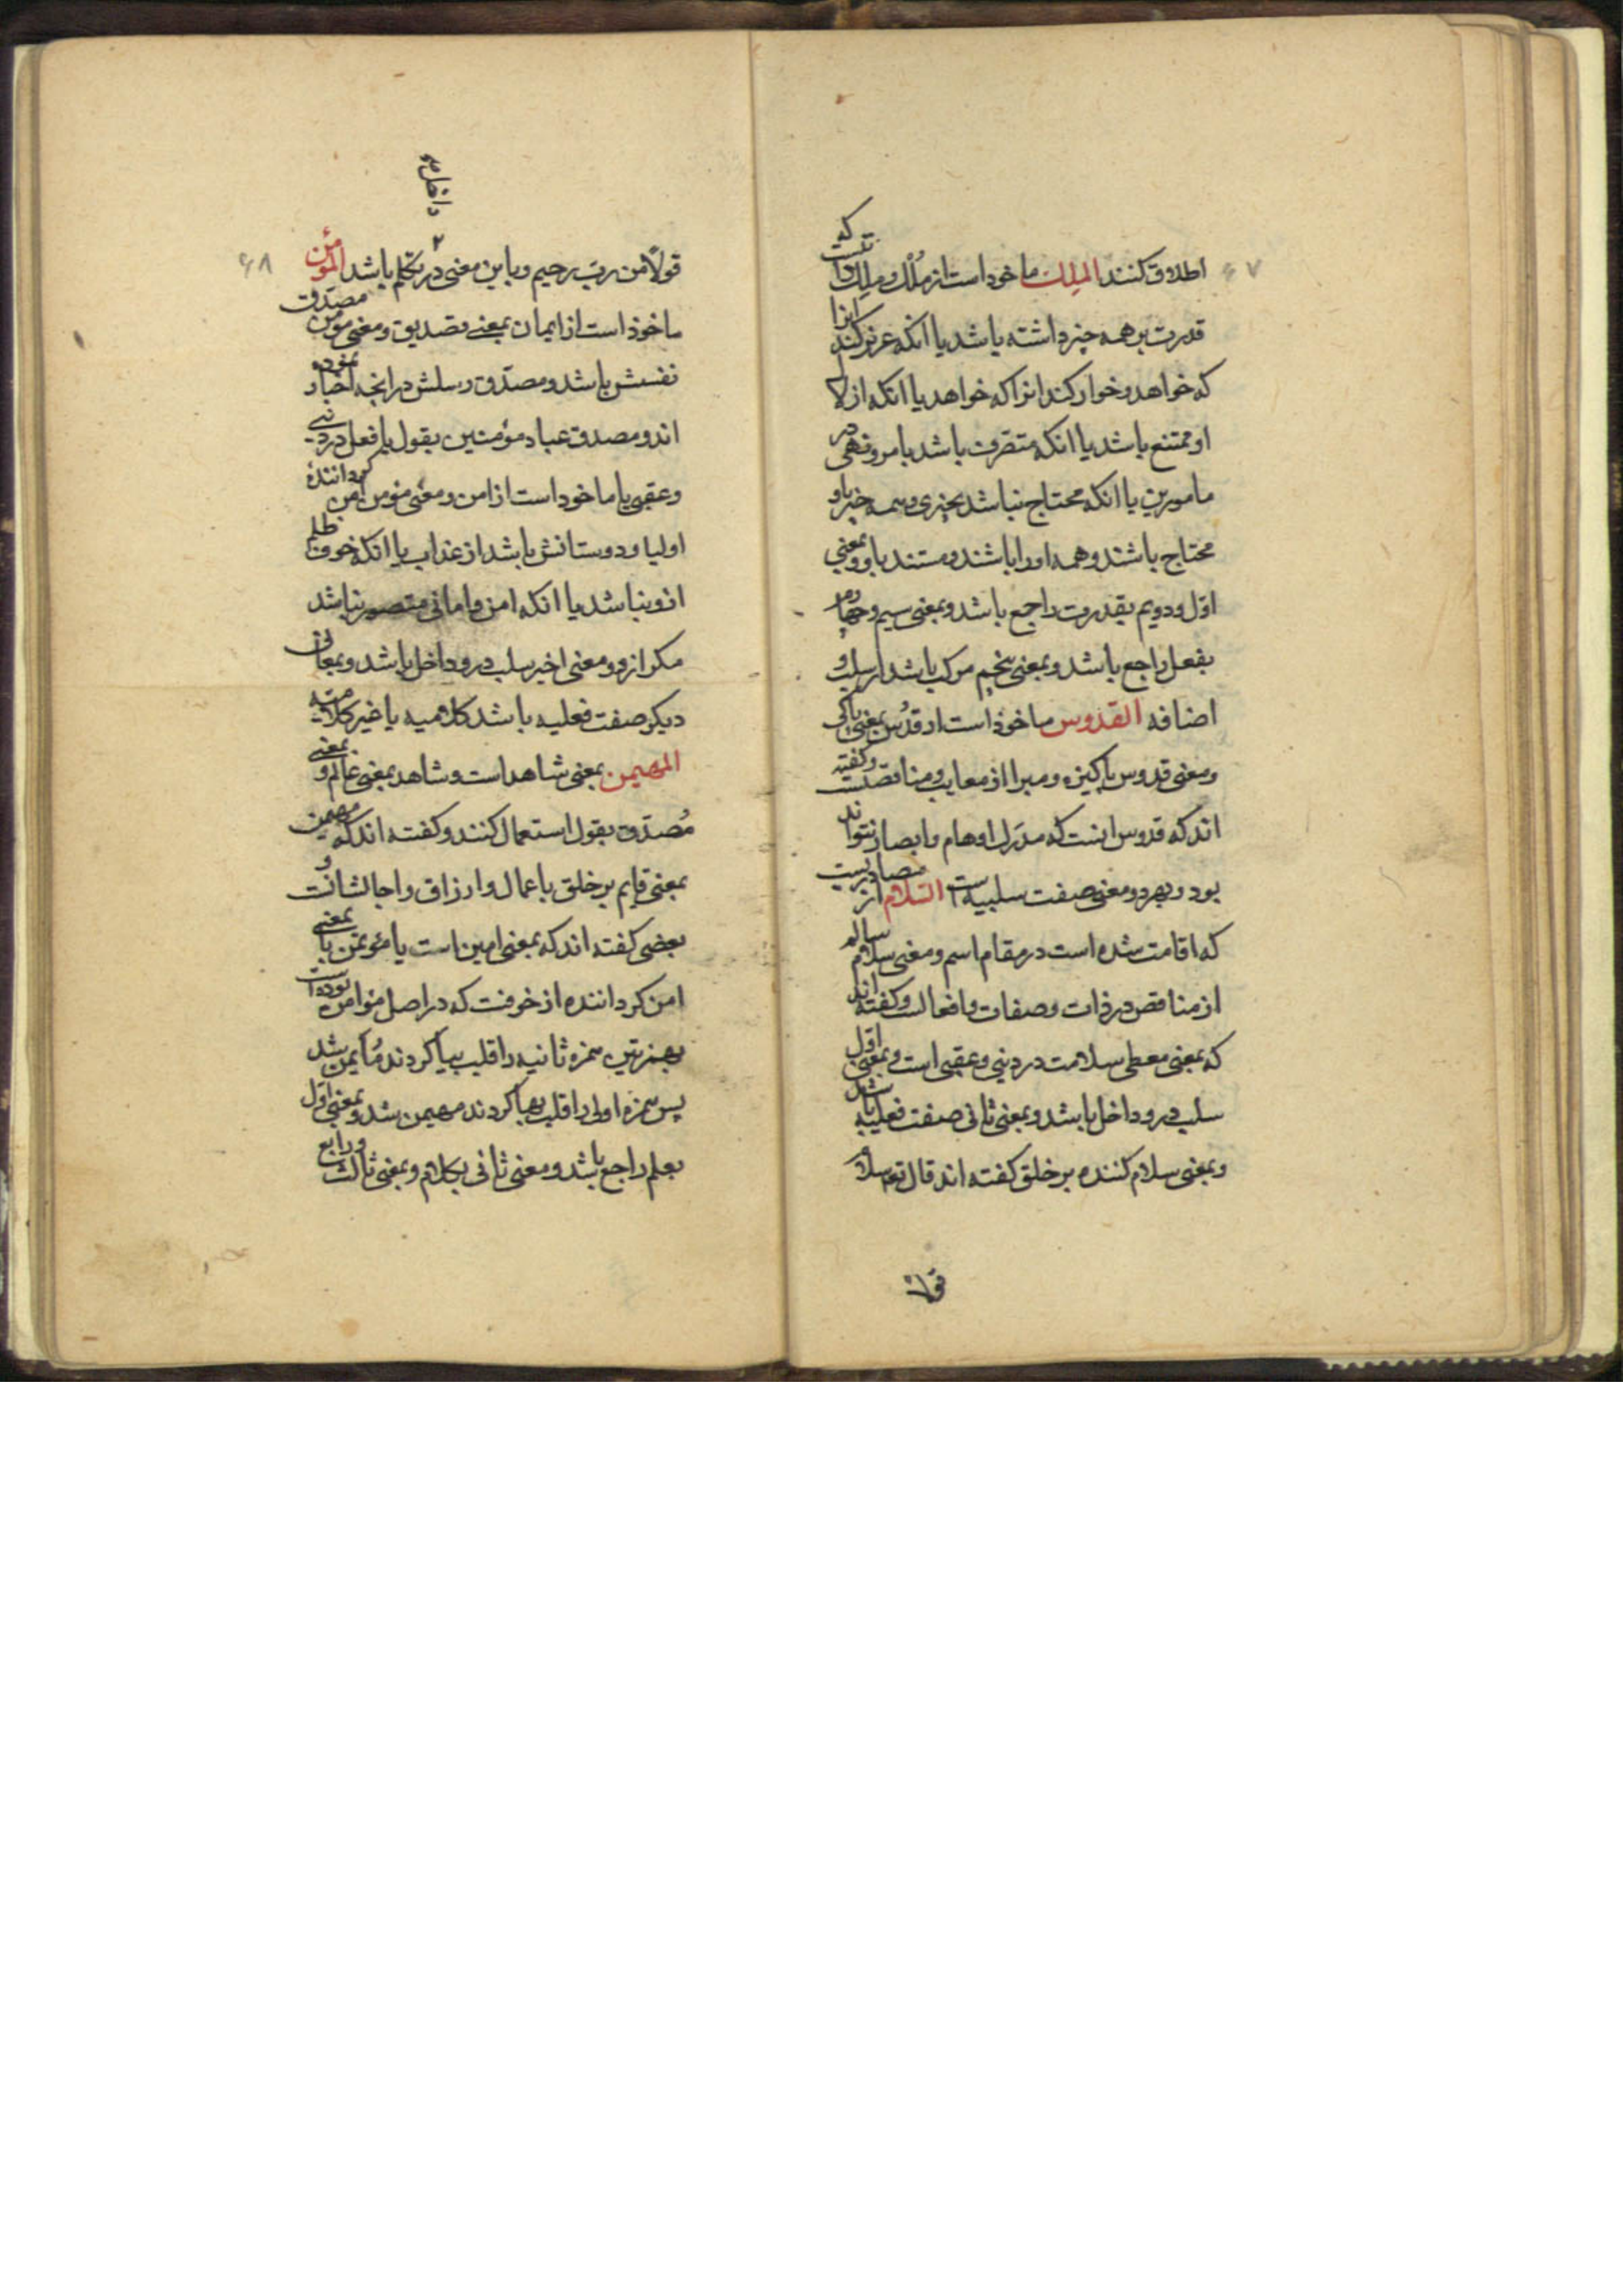 اطلاق کنند الملک ماخوذ است از مُلک و ملک آنست که
قدرت بر همه چیز داشته باشد یا انکه عزیز کند انرا
که خواهد و خوار کند انرا که خواهد یا انکه ازلا
او ممتنع باشد یا انکه متصرف باشد بامر و نهی در
مامورین یا انکه محتاج نباشد بچیزی و همه چیز باو
محتاج باشند و همه او را باشند و مستند باو و بمعنی
اوّل و دویم بقدرت راجع باشد و بمعنی سیم و چهارم
بفعل راجع باشد و بمعنی پنجم مرکب باشد از سلب و
اضافه القدوس ماخوذ است از قدُس بمعنی پاکی
و معنی قدوس پاکیزه و مبرا از معایب و مناقصست و گفته
اند که قدوس انست که مدرَک اوهام و ابصار نتواند
بود و بهر دو معنی صفت سلبیه است السّلام از مصادریست
که اقامت شده است در مقام اسم و معنی سلام سالم
از مناقص در ذات و صفات و افعالست و گفته اند
که بمعنی معطی سلامت در دنیی و عقبی است و بمعنی اول
سلب درو داخل باشد و بمعنی ثانی صفت فعلیه باشد
و بمعنی سلام کننده بر خلق گفته اند قال تعه سلام
قولا
۶۷
قولاً من ربّ رحیم و باین معنی در تکلّم باشد المؤمن
۲
داخل
۶۸
ماخوذ است از ایمان بمعنی تصدیق و معنی مؤمن مصدّق
نفسش باشد و مصدّق رسلش در انچه اخبار نموده
اند و مصدق عباد مؤمنین بقول یا فعل در دنیی
و عقبی یا ماخوذ است از امن و معنی مؤمن امن گرداننده
اولیا و دوستانش باشد از عذاب یا انکه خوف ظلم
ازو نباشد یا انکه امن و امانی متصور نباشد
مگر ازو و معنی اخیر سلب درو داخل باشد و بمعانی
دیگر صفت فعلیه باشد کلامیه یا غیر کلامیه
المهیمن بمعنی شاهد است و شاهد بمعنی عالم و بمعنی
مُصدّق بقول استعمال کنند و گفته اند که مهیمن
بمعنی قایم بر خلق باعمال و ارزاق و اجالشانست و
بعضی گفته اند که بمعنی امین است یا مؤتمن یا بمعنی
امن گرداننده از خوفست که در اصل مؤامن بوده است
بهمزتین همزه ثانیه را قلب بیا کردند مُأیمن شد
پس همزه اولی را قلب بها کردند مهیمن شد و بمعنی اوّل
بعلم راجع باشد و معنی ثانی بکلام و بمعنی ثالث و رابع